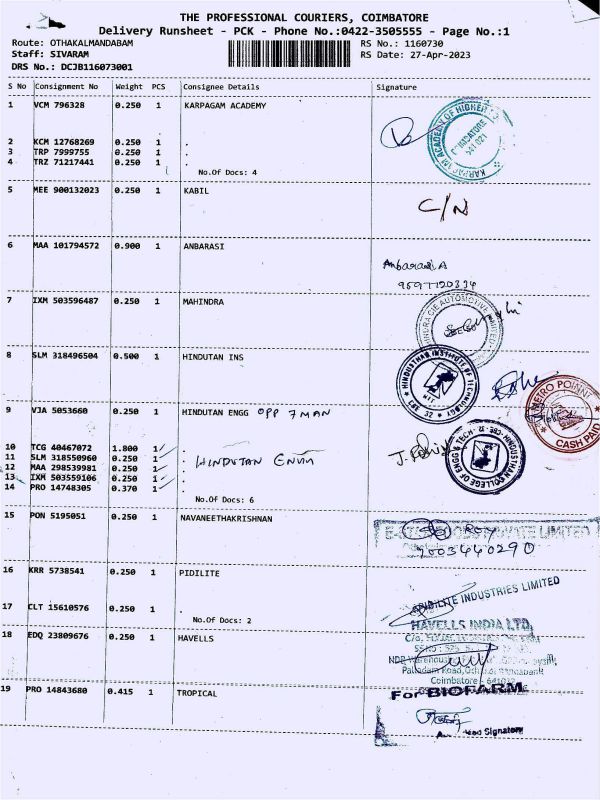 THE PROFESSIONAL COURIERS, COIMBATORE
Delivery Runsheet - PCK - Phone No.:0422-3505555 - Page No.:1
Route: OTHAKALMANDABAM RS No.: 1160730
Staff: SIVARAM RS Date: 27-Apr-2023
DRS No.: DCJB116073001
S No Consignment No Weight PCS Consignee Details Signature
1 VCM 796328 0.250 1 KARPAGAM ACADEMY
2 KCM 12768269 0.250 1 .
3 TRP 7999755 0.250 1 .
4 TRZ 71217441 0.250 1 .
No.Of Docs: 4
5 MEE 900132023 0.250 1 KABIL C/N
6 MAA 101794572 0.900 1 ANBARASI
Anbarasi A
9597120334
7 IXM 503596487 0.250 1 MAHINDRA
8 SLM 318496504 0.500 1 HINDUTAN INS
HINDUSTHAN INSTITUTE OF TECHNOLOGY
METRO POINT
CASH PAID
9 VJA 5053660 0.250 1 HINDUTAN ENGG OPP 7 MAN
10 TCG 40467072 1.800 1 .
11 SLM 318550960 0.250 1 . HINDUTAN
12 MAA 298539981 0.250 1 .
13 IXM 503559106 0.250 1 .
14 PRO 14748305 0.370 1 .
No.Of Docs: 6
HINDUSTHAN COLLEGE OF ENGG & TECH
15 PON 5195051 0.250 1 NAVANEETHAKRISHNAN
9003440290
16 KRR 5738541 0.250 1 PIDILITE
PIDILITE INDUSTRIES LIMITED
17 CLT 15610576 0.250 1 .
No.Of Docs: 2
HAVELLS INDIA LTD.
18 EDQ 23809676 0.250 1 HAVELLS
Coimbatore - 641032
19 PRO 14843680 0.415 1 TROPICAL
For BIOFARM
Signatory